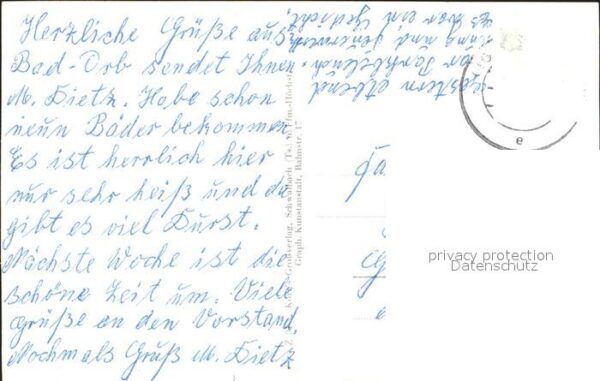 Herzliche Grüße aus
Bad-Orb sendet Ihnen
M. Dietz. Habe schon
neun Bäder bekommen
Es ist herrlich hier
nur sehr heiß und da
gibt es viel Durst.
Nächste Woche ist die
schöne Zeit um. Viele
Grüße an den Vorstand.
Nochmals Gruß M. Dietz
gestern Abend
war Parkbeleuch-
tung und Feuerwerk
es war ein Gedicht.
Schwalbach (Ts.)
Graph. Kunstanstalt, Bahnstr. 17
privacy protection
Datenschutz